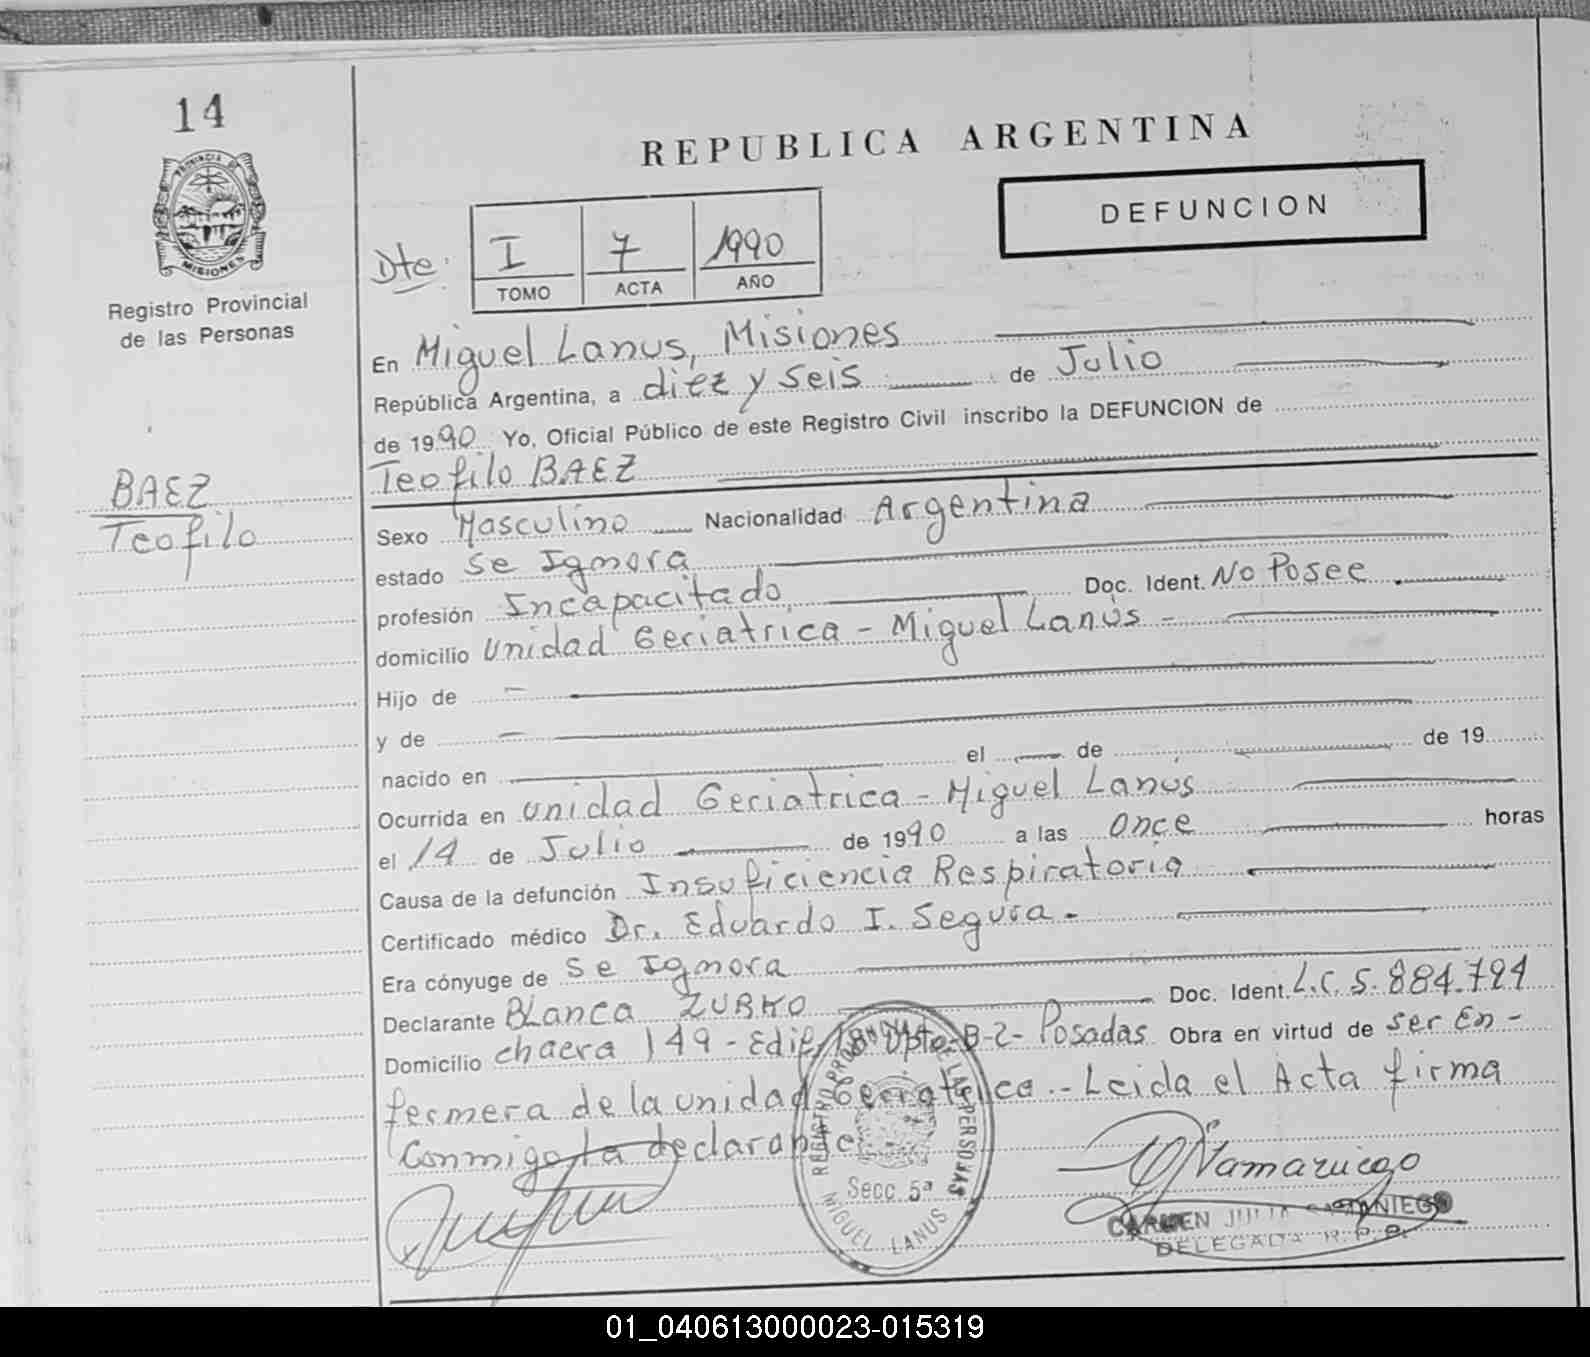 14
PROVINCIA DE
MISIONES
Registro Provincial
de las Personas
BAEZ
Teofilo
REPUBLICA ARGENTINA
DEFUNCION
Dte: I 7 1990
TOMO ACTA AÑO
En Miguel Lanus, Misiones
República Argentina, a diez y seis de Julio
de 1990 Yo, Oficial Público de este Registro Civil inscribo la DEFUNCION de
Teofilo BAEZ
Sexo Masculino Nacionalidad Argentina
estado Se Ignora
profesión Incapacitado Doc. Ident. No Posee
domicilio Unidad Geriatrica - Miguel Lanús -
Hijo de -
y de -
nacido en el de de 19
Ocurrida en Unidad Geriatrica - Miguel Lanús
el 14 de Julio de 1990 a las Once horas
Causa de la defunción Insuficiencia Respiratoria
Certificado médico Dr. Eduardo I. Segura -
Era cónyuge de Se Ignora
Declarante BLanca ZUBKO Doc. Ident. L.C. 5.884.794
Domicilio chacra 149 - Edif. 18 Dpto. B-2- Posadas Obra en virtud de ser En-
fermera de la Unidad Geriatrica .- Leida el Acta firma
Conmigo la declarante
REGISTRO PROVINCIAL DE LAS PERSONAS
Secc. 5ª
MIGUEL LANUS
CARMEN JULIA
DELEGADA R. P. P.
01_040613000023-015319